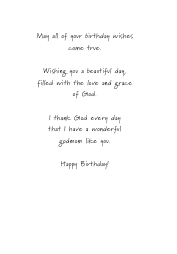 May all of your birthday wishes
come true.
Wishing you a beautiful day,
filled with the love and grace
of God.
I thank God every day
that I have a wonderful
godmom like you.
Happy Birthday!